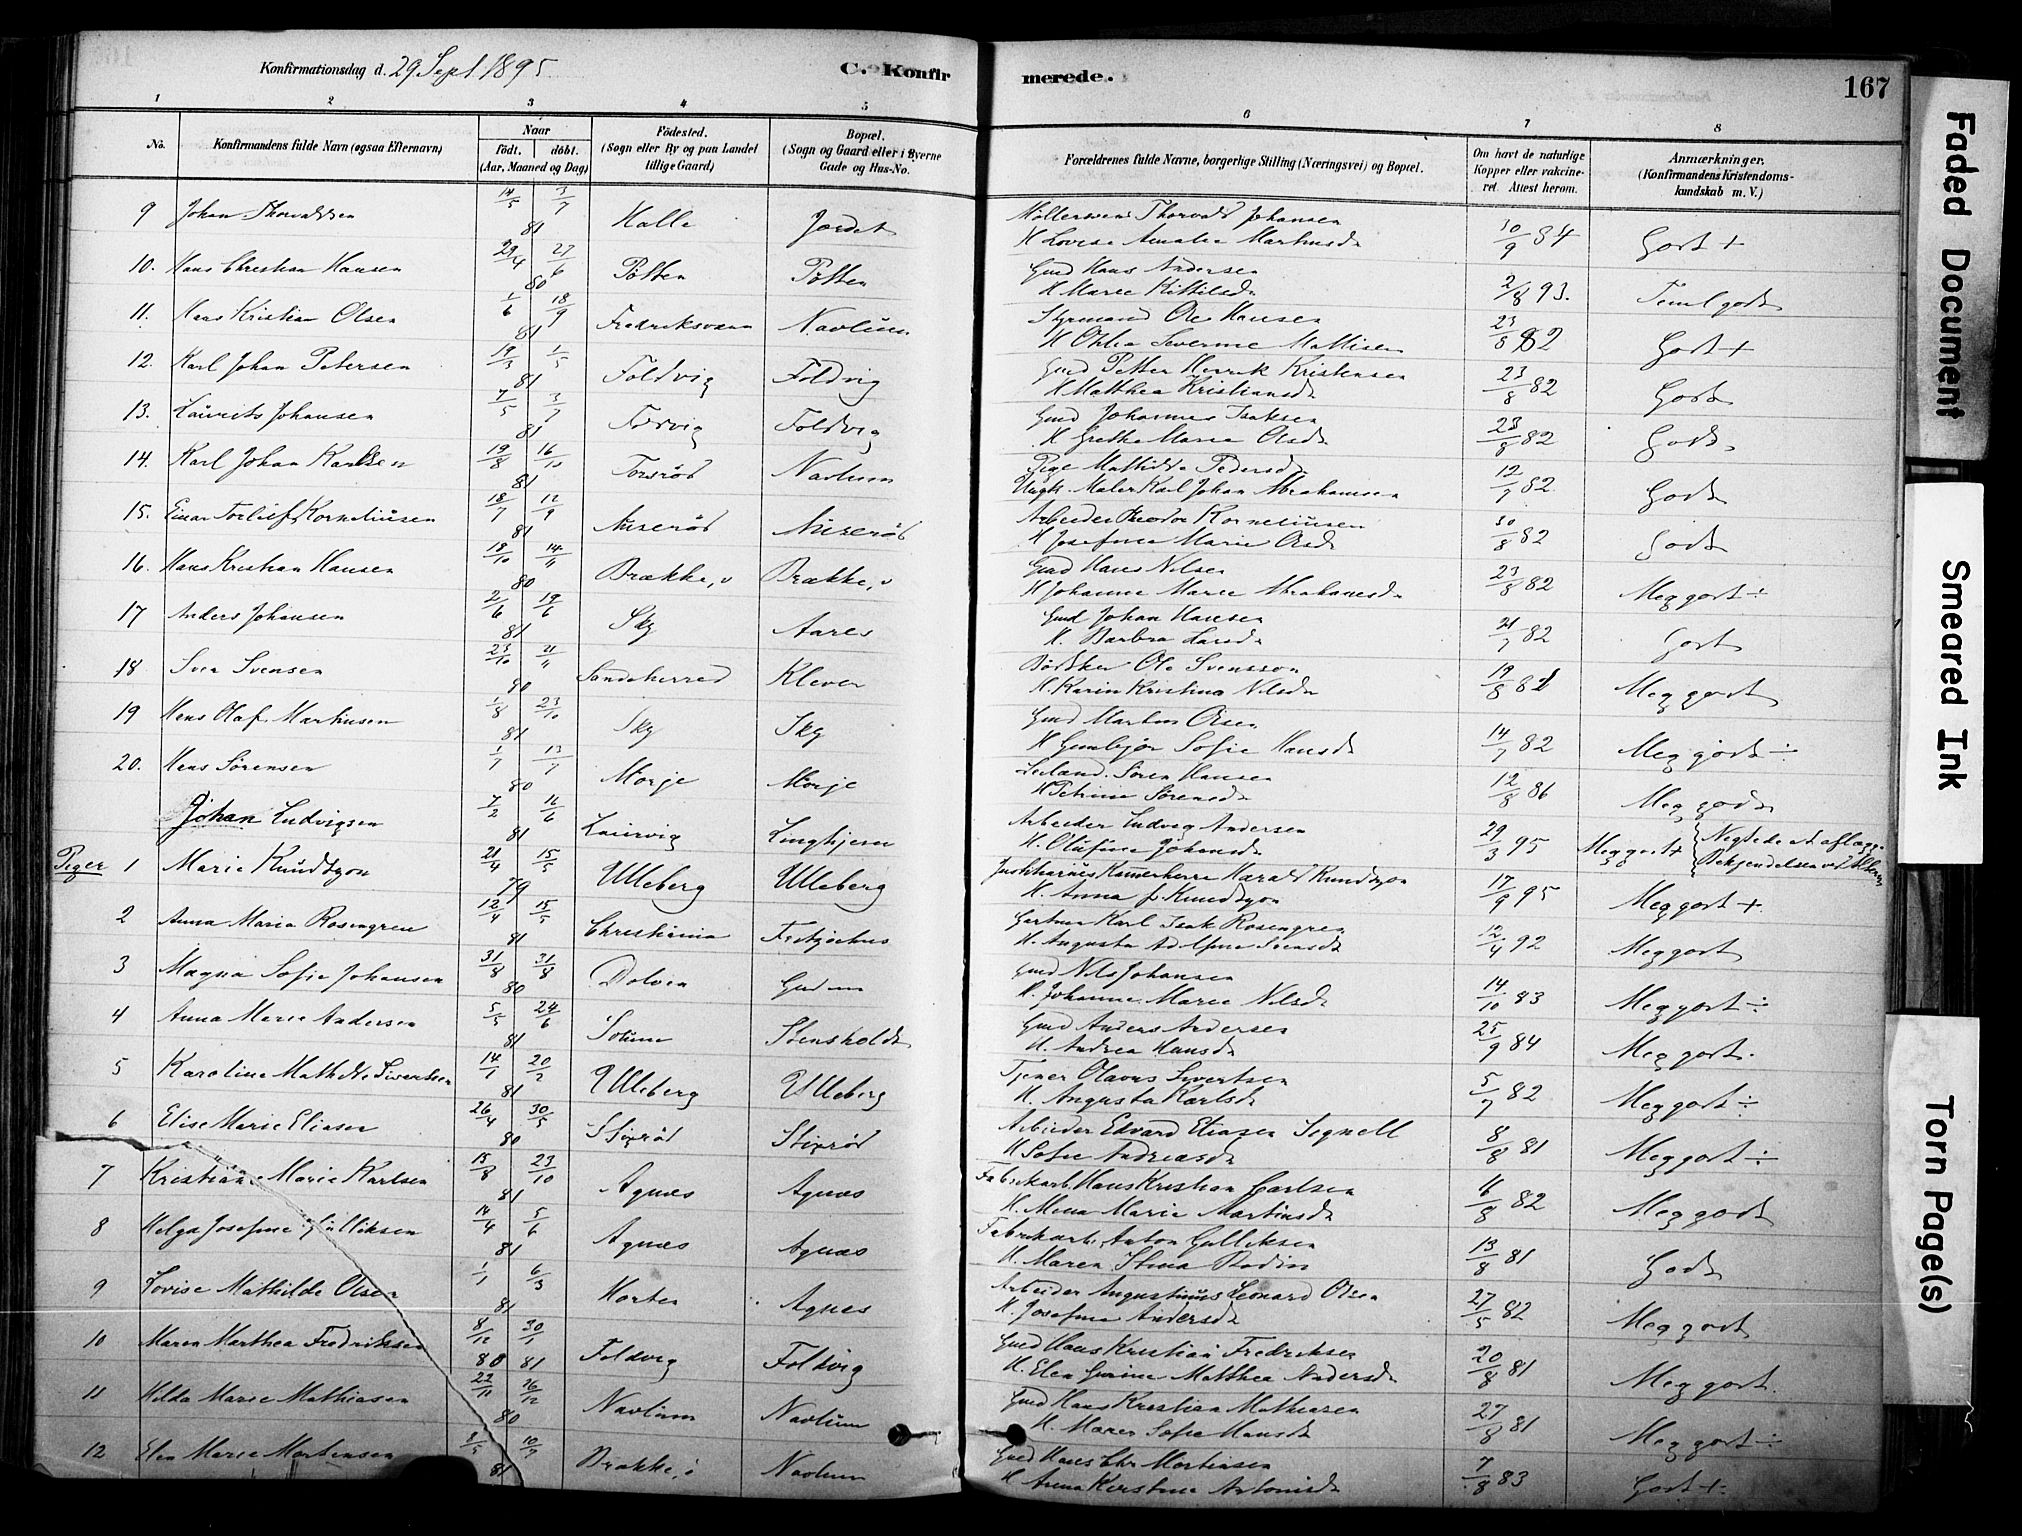 Konfirmationsdag d. 29 Sept 1895
C. Konfirmerede.
167
1 2 3 4 5 6 7 8
No. Konfirmandens fulde Navn (ogsaa Efternavn) Naar Födt. döbt. (Aar, Maaned og Dag) Födested. (Sogn eller By og paa Landet tillige Gaard) Bopæl. (Sogn og Gaard eller i Byerne Gade og Hus-No. Forældrenes fulde Navne, borgerlige Stilling (Næringsvei) og Bopæl. Om havt de naturlige Kopper eller vakcineret. Attest herom. Anmærkninger. (Konfirmandens Kristendomskundskab m. V.)
9 Johan Thorvaldsen 14/5 3/7 81 Halle Jordet Möllersvend Thorvald Johansen
H Lovise Amalie Martinsd. 10/9 84 Godt +
10. Hans Christian Hansen 29/4 27/6 80 Pötten Pötten Gmd Hans Andersen
H Maree Kittilsd. 2/8 93. Teml godt
11. Hans Kristian Olsen 1/6 18/9 81 Fredriksværn Navlum Styrmand Ole Hansen
H Othlia Severine Mathisen 23/8 82 Godt +
12. Karl Johan Petersen 19/3 1/5 81 Foldvig Foldvig Gmd Petter Henrik Kristensen
H Matthea Kristiansd. 23/8 82 Godt
13. Laurits Johansen 7/5 3/7 81 Foldvig Gmd Johannes Isaksen
H Grethe Marie Olsd. 23/8 82 Godt
14. Karl Johan Karlsen 19/8 16/10 81 Torsröd Navlum Pige Mathilde Pedersd.
Ungk. Maler Karl Johan Abrahamsen 12/7 82 Godt
15. Einar Torleif Korneliusen 18/7 11/9 81 Auseröd Auseröd Arbeider Theodor Korneliusen
H Josefine Marie Olsd. 30/8 82 Godt
16. Hans Kristian Hansen 18/10 14/11 80 Brække, ö Brække, ö Gmd Hans Nilsen
H Johanne Marie Abrahamsd. 23/8 82 Meg godt ÷
17 Anders Johansen 2/6 19/6 81 Sky Aares Gmd Johan Hansen
H. Barbra Larsd. 21/7 82 Godt
18 Sven Svensen 23/10 21/11 80 Sandeherred Klever Bödker Ole Svensson
H. Karin Kristina Nilsd. 19/8 81 Meg godt
19 Hans Olaf Martinsen 1/8 23/10 81 Sky Sky Gmd Martin Olsen
H Gunbjör Sofie Hansd. 14/7 82 Meg godt ÷
20. Hans Sörensen 1/7 13/7 80 Mörje Mörje Leiland. Sören Hansen
H Petrine Sörensd. 12/8 86 Meg godt
Johan Ludvigsen 7/2 16/6 81 Laurvig Arbeider Ludvig Andersen
H. Olufine Johansd. 29/3 95 Meg godt + Negtede at aflægge Bekjendelsen ved Alteret
Piger 1 Marie Knudtzon 21/4 15/5 79 Ulleberg Ulleberg Kammerherre Harald Knudtzon
H. Anna f. Knudtzon 17/9 95 Meg godt +
2 Anna Maria Rosengren 12/4 15/5 81 Christiania Fritzöehus Gartner Karl Isak Rosengren
H. Augusta Adolfine Svensd. 12/4 92 Meg godt
3 Magna Sofie Johansen 31/8 31/8 80 Dolven Gmd Nils Johansen
H. Johanne Marie Nilsd. 14/10 83 Meg godt ÷
4 Anna Marie Andersen 5/5 24/6 81 Solum Stensholdt Gmd Anders Andersen
H. Andrea Hansd. 25/9 84 Meg godt.
5 Karoline Mathilde Sivertsen 14/1 20/2 81 Ulleberg Ulleberg Tjener Olavus Sivertsen
H. Augusta Karlsd. 5/7 82 Meg godt ÷
6 Elise Marie Eliasen 26/4 30/5 80 Stixröd Stixröd Arbeider Edvard Eliasen Segnell
H Sofie Andreasd. 8/8 81 Meg godt ÷
7 Kristiane Marie Karlsen 15/8 23/10 81 Agnæs Agnæs Fabrikarb. Hans Kristian Carlsen
H. Mina Marie Martinsd. 16/8 82 Meg godt
8 Helga Josefine Gulliksen 14/4 5/6 81 Agnæs Agnæs Fabrikarb. Anton Gulliksen
H. Maren Stina Rodin 13/8 81 Godt
9 Lovise Mathilde Olsen 1/1 6/3 81 Horten Agnes Arbeider Augustinus Leonard Olsen
H. Josefine Andersd. 27/5 82 Meg godt
10 Maren Marthea Fredriksen 8/12 30/1 80 81 Foldvig Foldvig Gmd Hans Kristian Fredriksen
H. Elen Gurine Matthea Andersd. 20/8 81 Meg godt.
11 Hilda Marie Mathiasen 22/11 26/12 80 Navlum Navlum Gmd Hans Kristian Mathiasen
H. Maren Sofie Hansd. 27/8 81 Meg godt ÷
12 Elen Marie Mortensen 8/5 10/7 81 Brække, ö Navlum Gmd Hans Chr Mortensen
H Anna Kirstine Antonisd. 7/8 83 Godt ÷
Faded Document
Smeared Ink
Torn Page(s)